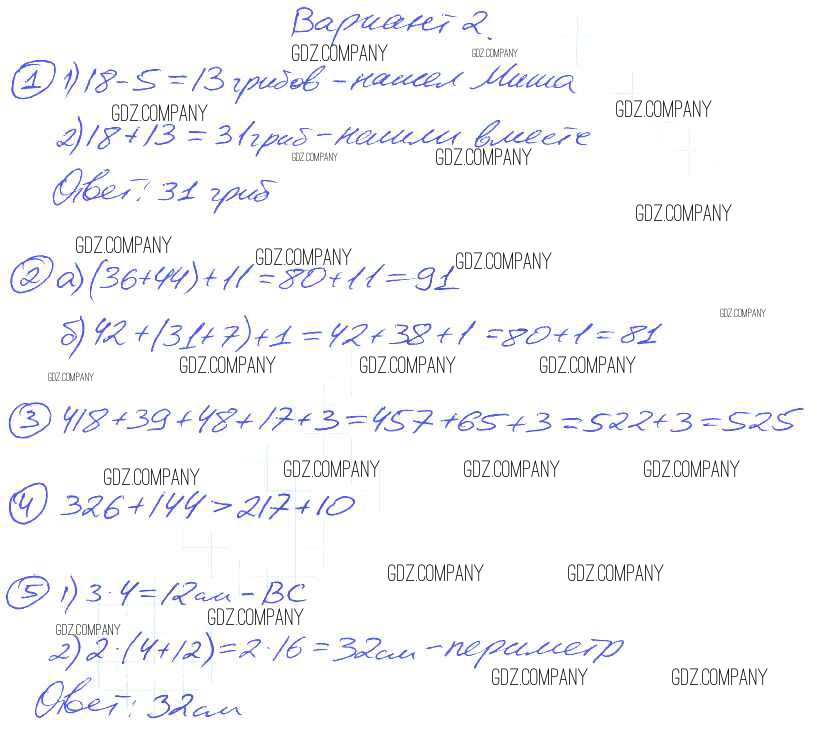 Вариант 2.
GDZ.COMPANY GDZ.COMPANY
1 1) 18-5=13 грибов - нашел Миша
GDZ.COMPANY GDZ.COMPANY
2) 18+13=31 гриб - нашли вместе
GDZ.COMPANY GDZ.COMPANY
Ответ: 31 гриб
GDZ.COMPANY
GDZ.COMPANY GDZ.COMPANY GDZ.COMPANY
2 а) (36+44)+11=80+11=91
GDZ.COMPANY
б) 42+(31+7)+1=42+38+1=80+1=81
GDZ.COMPANY GDZ.COMPANY GDZ.COMPANY
GDZ.COMPANY
3 418+39+48+17+3=457+65+3=522+3=525
GDZ.COMPANY GDZ.COMPANY GDZ.COMPANY GDZ.COMPANY
4 326+144>217+10
GDZ.COMPANY GDZ.COMPANY
5 1) 3·4=12см - ВС
GDZ.COMPANY
GDZ.COMPANY
2) 2·(4+12)=2·16=32см - периметр
GDZ.COMPANY GDZ.COMPANY
Ответ: 32см